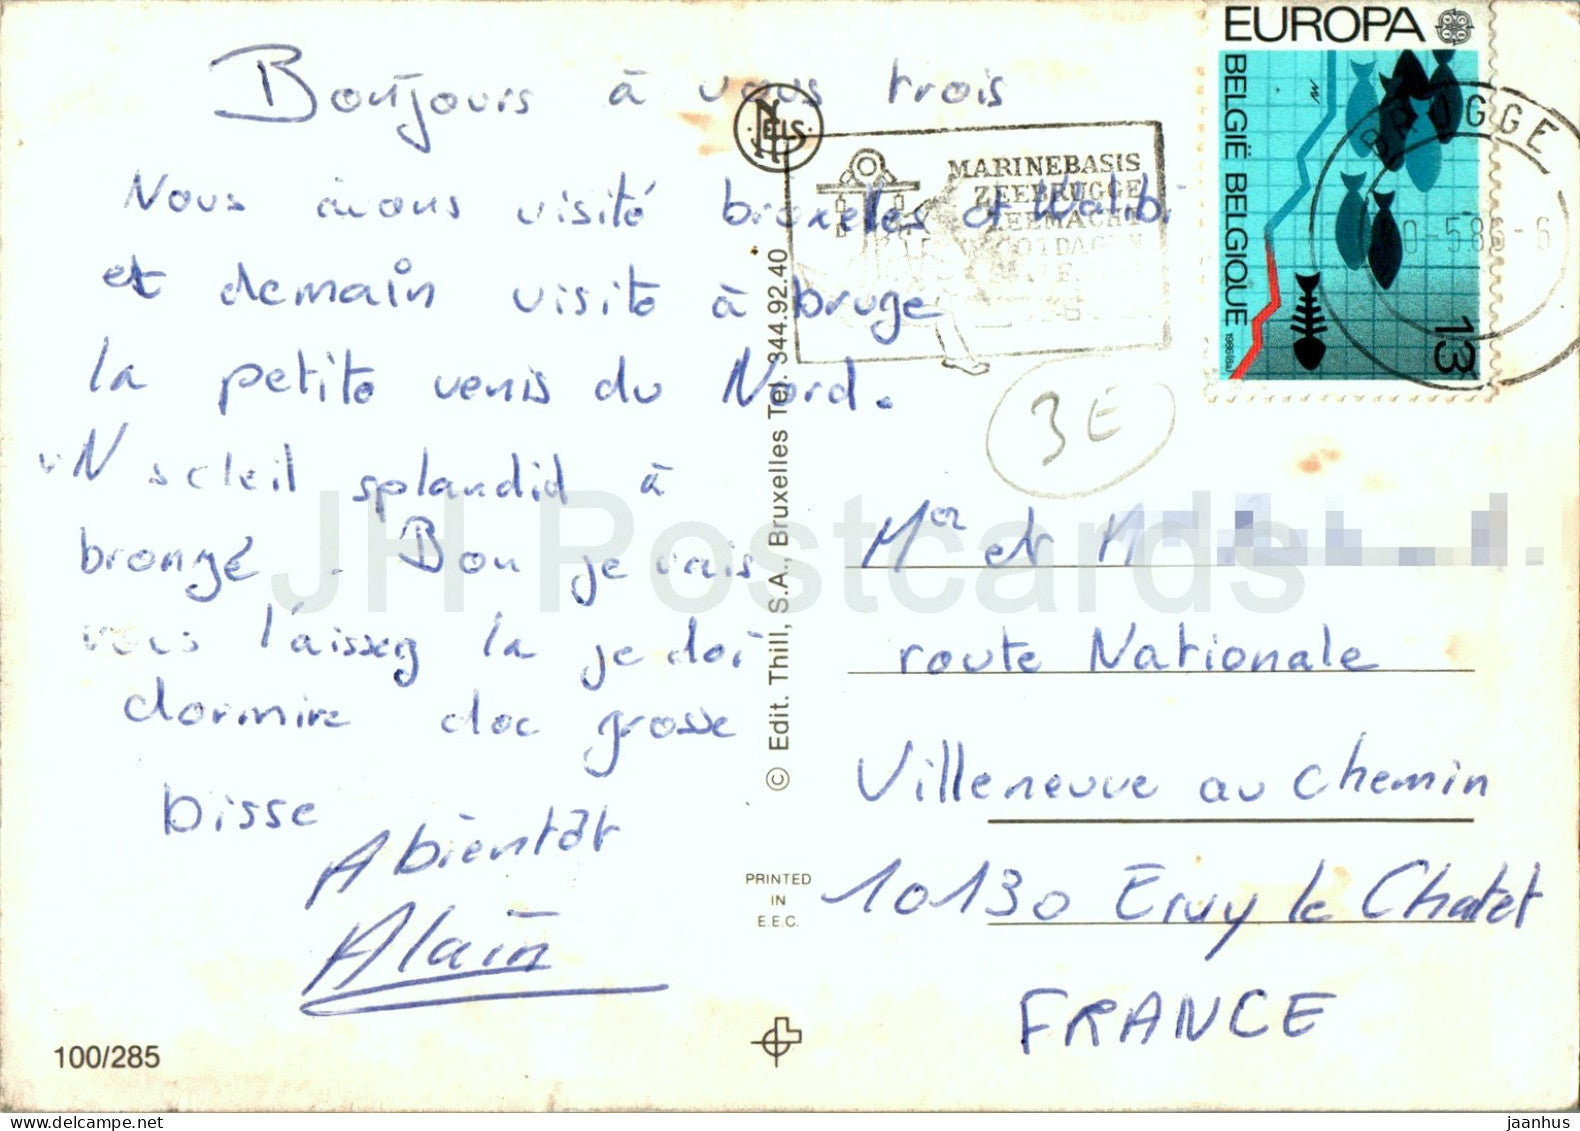 Bonjours à vous trois
Nous avons visité bruxelles et Walibi
et demain visite à bruge
la petite venis du Nord.
uN soleil splandid à
bronzé. Bon je vais
vous laisseg la je doi
dormire doc grosse
bisse
A bientôt
Alain
100/285
NELS
© Edit. Thill, S.A., Bruxelles Tel. 344.92.40
PRINTED
IN
E.E.C.
MARINEBASIS
ZEEBRUGGE
ZEEMACHT
EUROPA
BELGIË BELGIQUE 1986
13
BRUGGE
3E
Mer et M
route Nationale
Villeneuve au chemin
10130 Ervy le Chatet
FRANCE
JH Postcards
delcampe.net
jaanhus